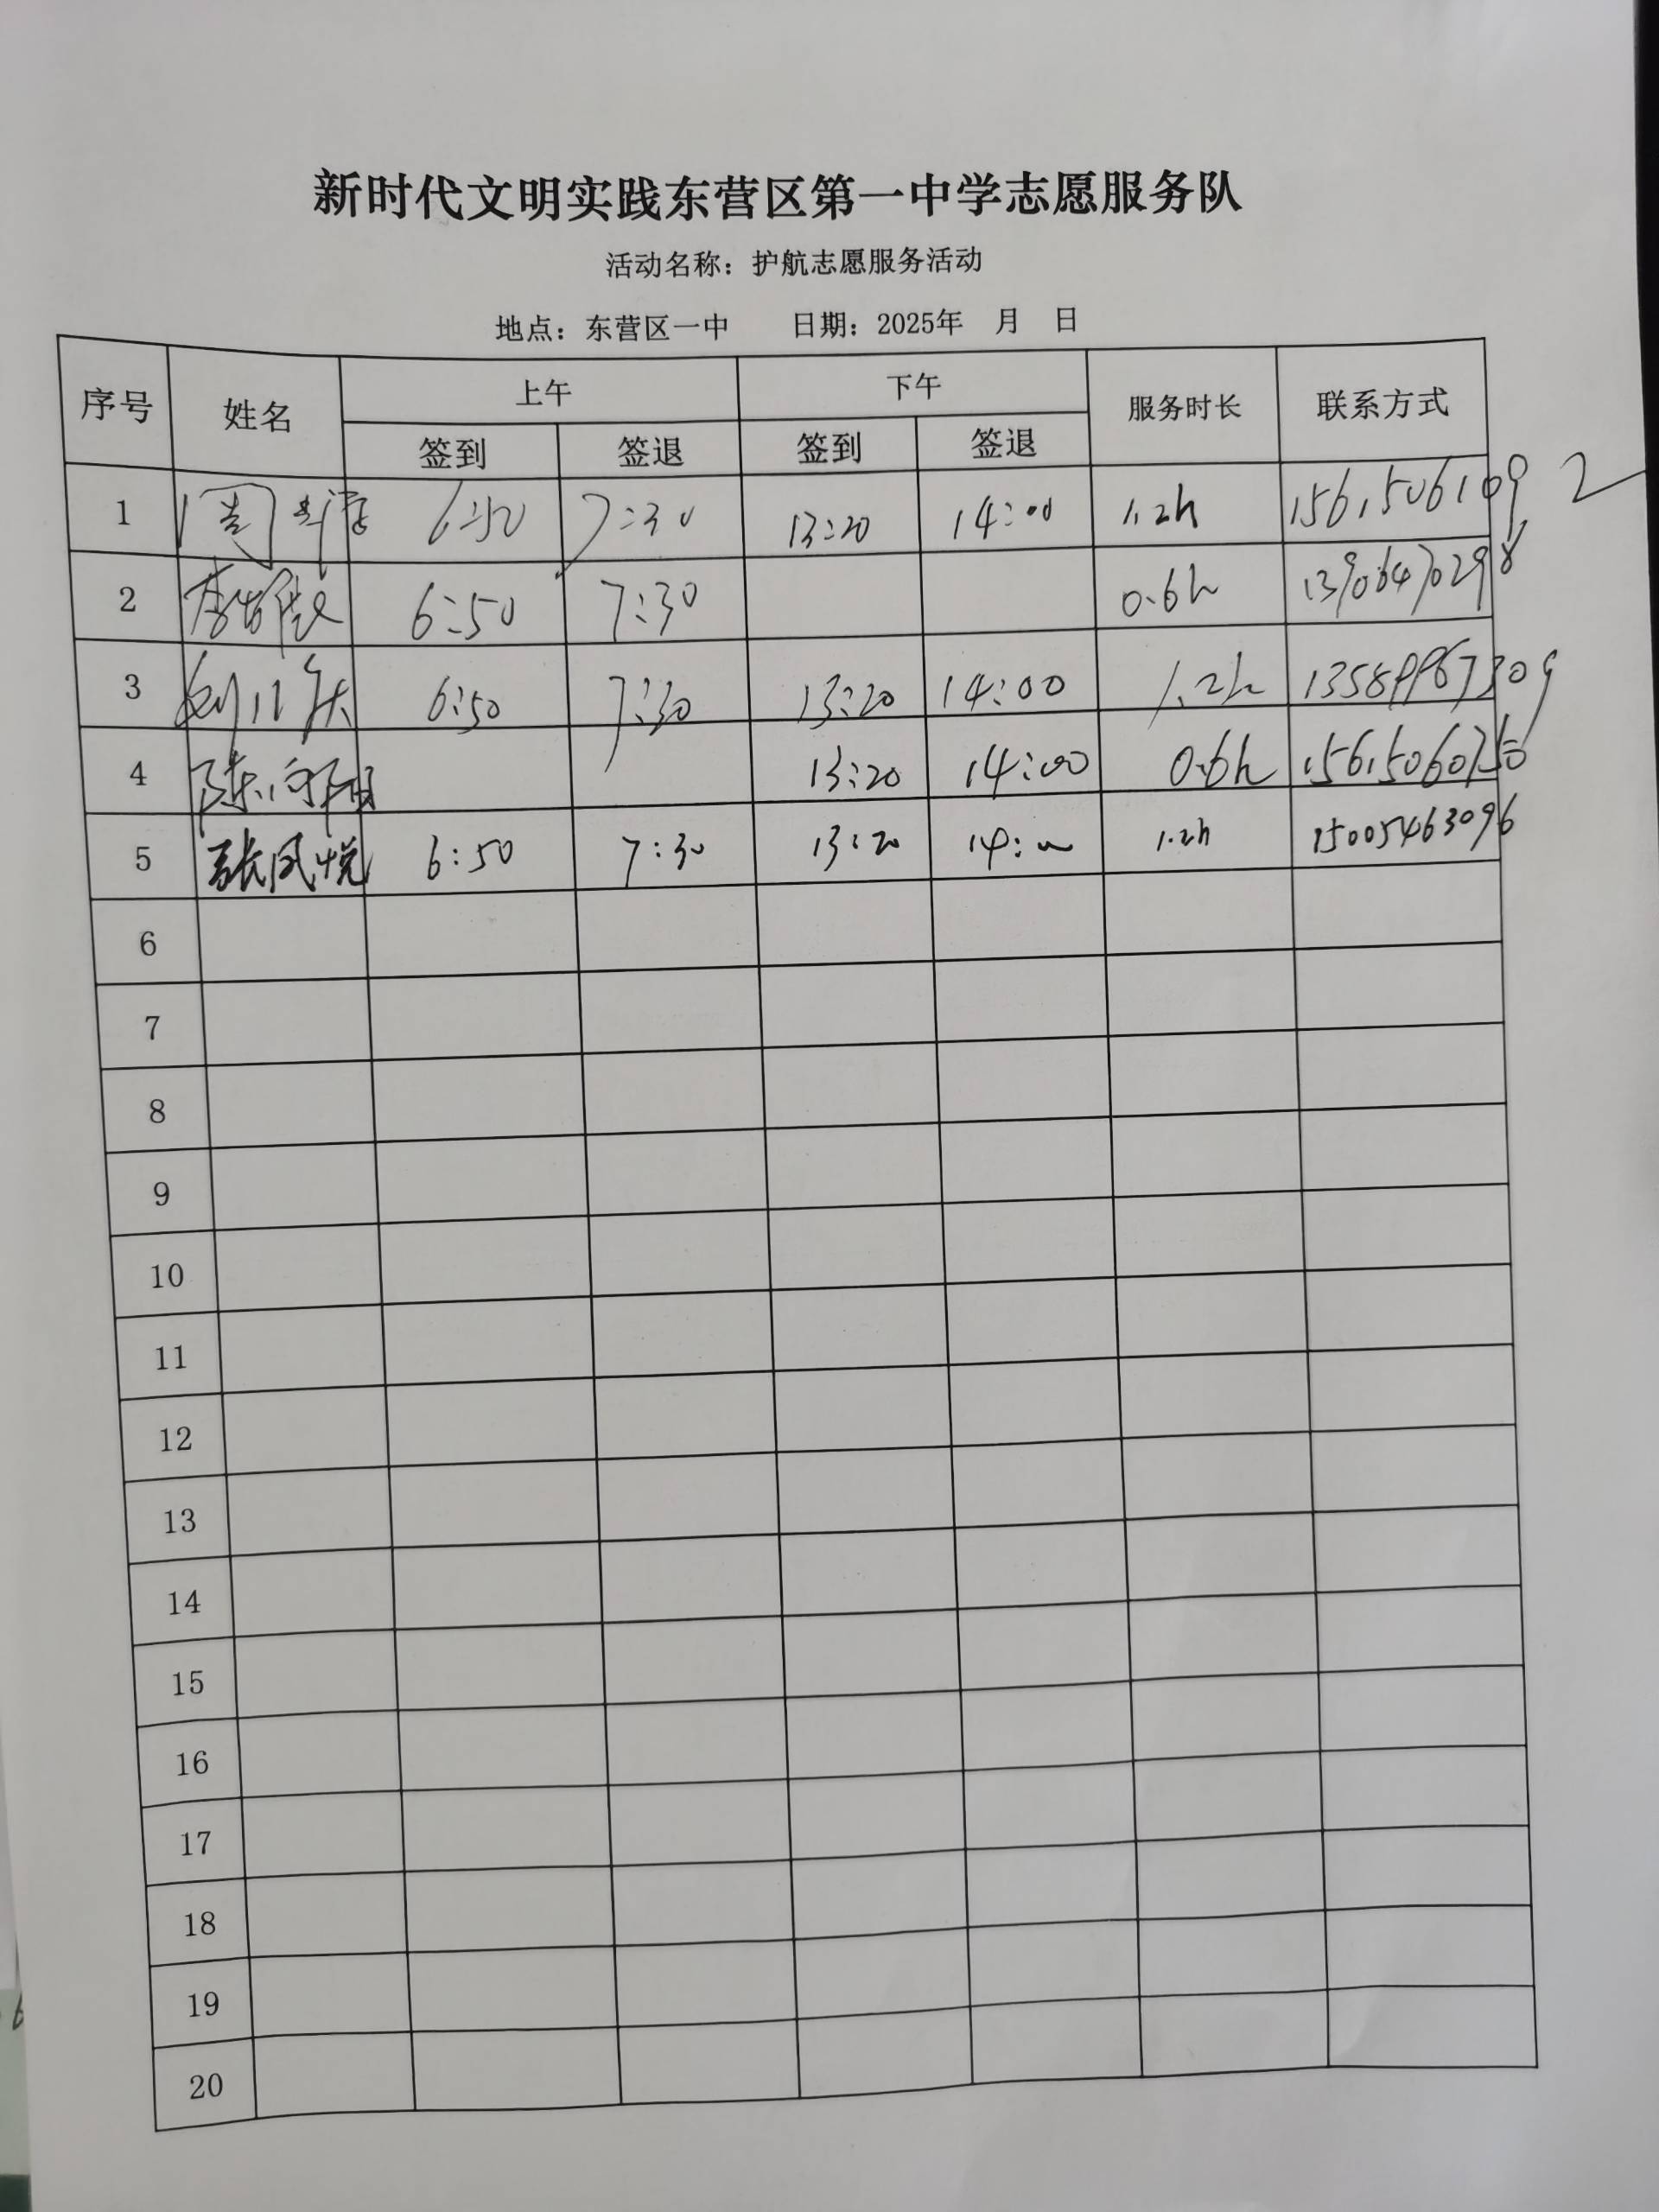 新时代文明实践东营区第一中学志愿服务队
活动名称：护航志愿服务活动
地点：东营区一中 日期：2025年 月 日
序号 姓名 上午 下午 服务时长 联系方式
签到 签退 签到 签退
1 周 6:50 7:30 13:20 14:00 1.2h 15615061092
2 李 6:50 7:30 0.6h 13906470298
3 刘 6:50 7:30 13:20 14:00 1.2h 13589987309
4 陈向阳 13:20 14:00 0.6h 15615060750
5 张凤悦 6:50 7:30 13:20 14:00 1.2h 15005463096
6
7
8
9
10
11
12
13
14
15
16
17
18
19
20